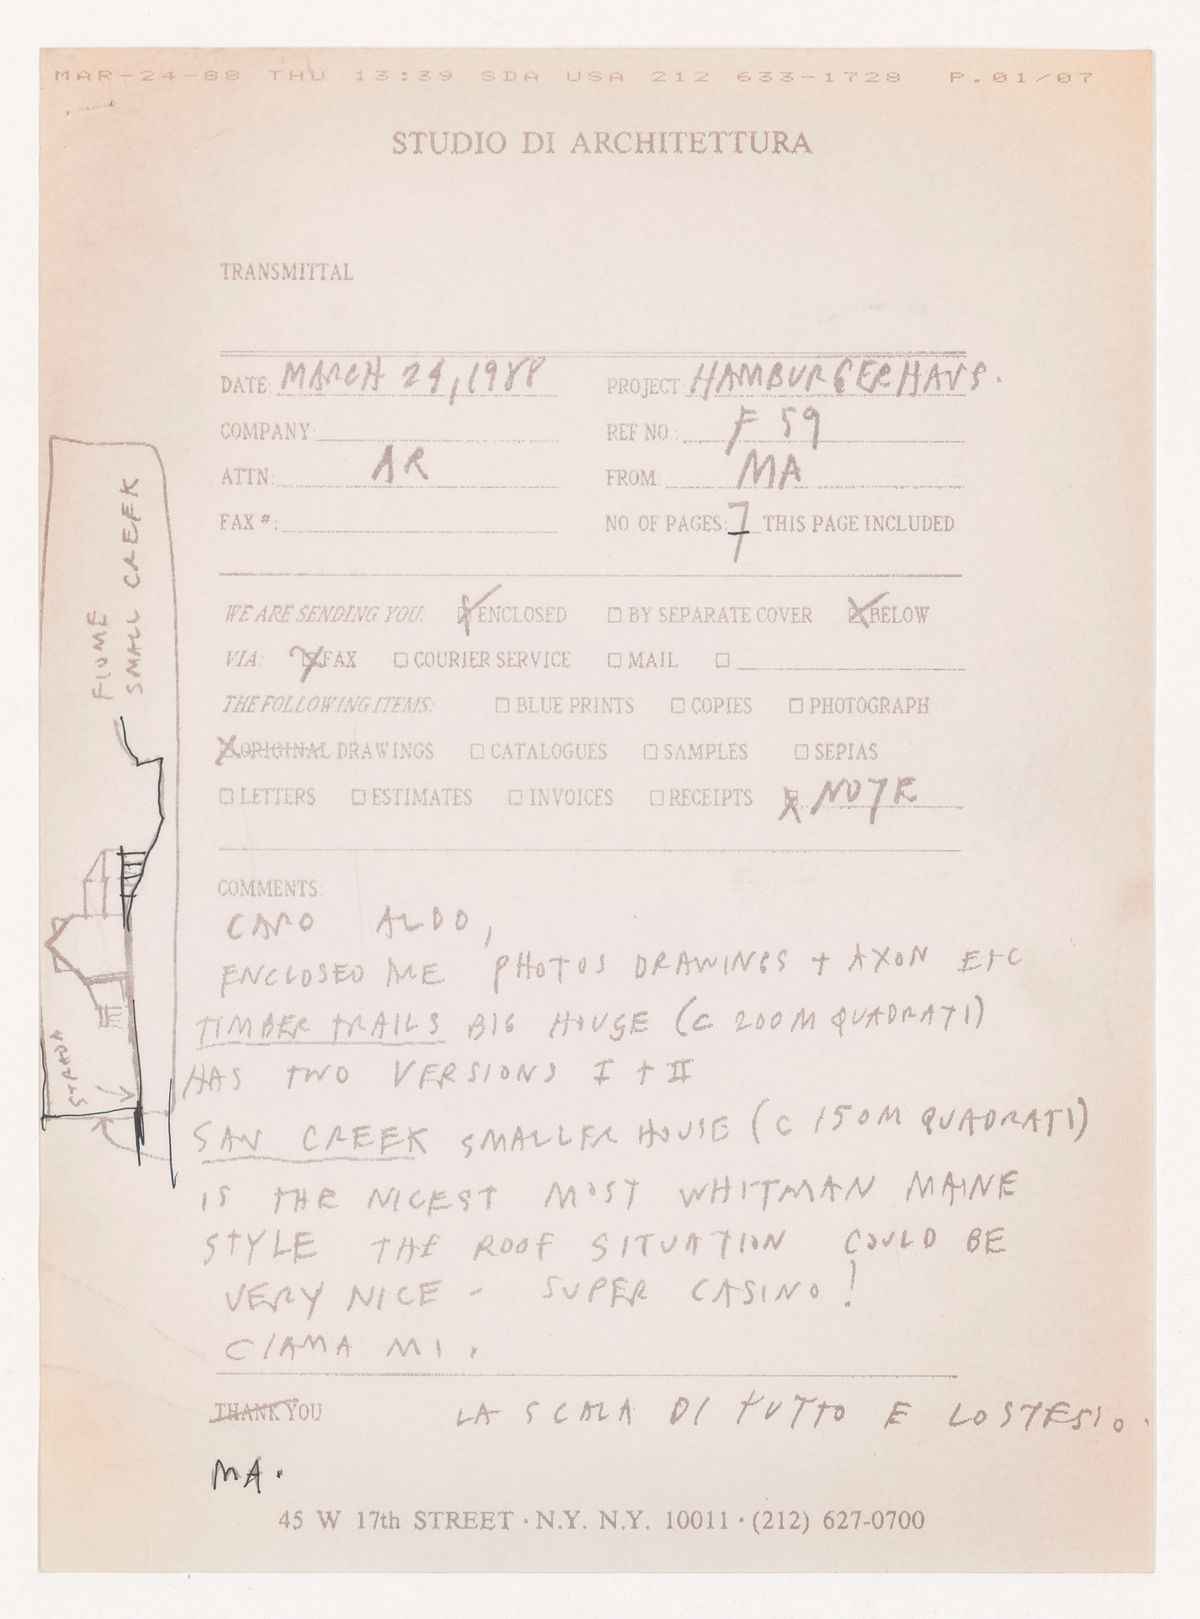 MAR-24-88 THU 13:39 SDA USA 212 633-1728 P.01/07
STUDIO DI ARCHITETTURA
TRANSMITTAL
DATE: MARCH 24, 1988 PROJECT: HAMBURGERHAUS.
COMPANY: REF NO.: F 59
ATTN: AR FROM: MA
FAX #: NO OF PAGES: 7 THIS PAGE INCLUDED
WE ARE SENDING YOU: ENCLOSED BY SEPARATE COVER BELOW
VIA: FAX COURIER SERVICE MAIL
THE FOLLOWING ITEMS: BLUE PRINTS COPIES PHOTOGRAPH
ORIGINAL DRAWINGS CATALOGUES SAMPLES SEPIAS
LETTERS ESTIMATES INVOICES RECEIPTS NOTE
FIUME
SMALL CREEK
STRADA
COMMENTS:
CARO ALDO,
ENCLOSED ARE PHOTOS DRAWINGS + AXON ETC
TIMBER TRAILS BIG HOUSE (C 200 M QUADRATI)
HAS TWO VERSIONS I + II
SAN CREEK SMALLER HOUSE (C 150 M QUADRATI)
IS THE NICEST MOST WHITMAN MAINE
STYLE THE ROOF SITUATION COULD BE
VERY NICE - SUPER CASINO!
CIAMA MI.
THANK YOU LA SCALA DI TUTTO E LOSTESSO.
MA.
45 W 17th STREET · N.Y. N.Y. 10011 · (212) 627-0700